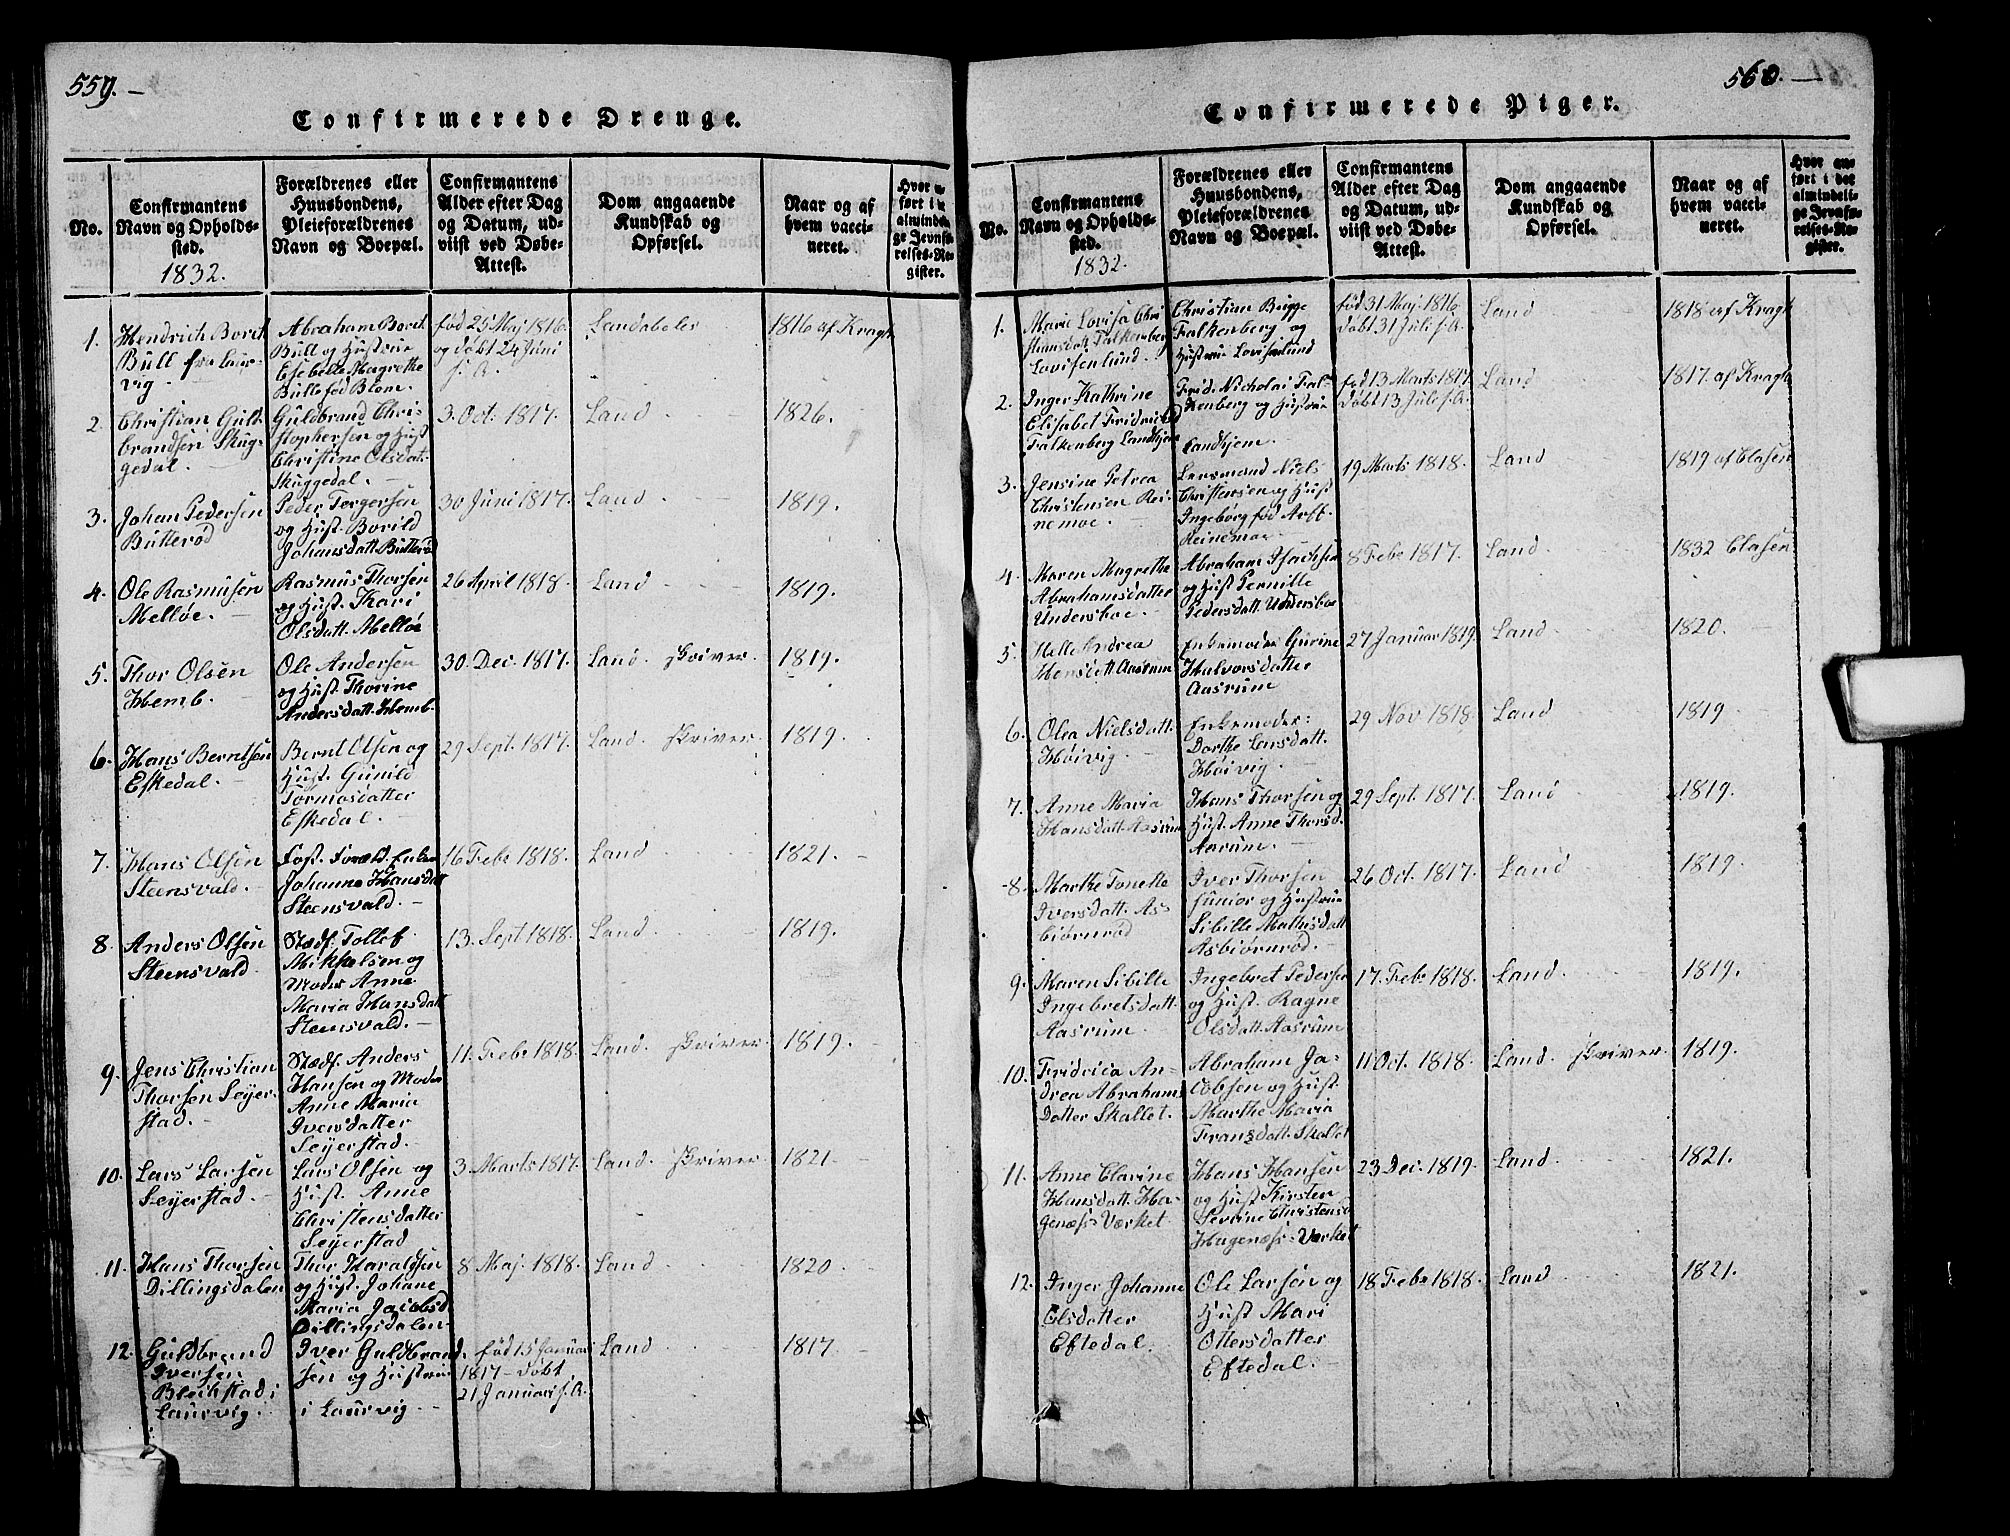 559.
Confirmerede Drenge.
No.
Confirmantens
Navn og Opholds-
sted.
1832.
Forældrenes eller
Huusbondens,
Pleieforældrenes
Navn og Boepæl.
Confirmantens
Alder efter Dag
og Datum, ud-
viist ved Døbe-
Attest.
Dom angaaende
Kundskab og
Opførsel.
Naar og af
hvem vacci-
neret.
Hvor
ført i
almindeli-
ge Jevnfø-
relses-Re-
gister.
1. Hendrich Borch
Bull fra Laur-
vig
Abraham Borch
Bull og Hustrue
Magrethe
Bull fød Blom.
fød 25 Maj 1816
og døbt 24 Juni
s. A.
1816 af Kragh
2. Christian Guld-
brandsen Skug-
gedal.
Guldbrand Chris-
stophersen og Hust
Christine Olsdat.
Skuggedal.
3. Oct. 1817.
Land
1826.
3. Johan Pedersen
Butterød
Peder Torgersen
og Hust. Borild
Johansdatt. Butterød
30 Juni 1817.
Land
1819.
4. Ole Rasmusen
Melløe.
Rasmus Thorsen
og Hust. Kari
Olsdatt. Melløe
26 April 1818.
Land
1819.
5. Thor Olsen
Hemb.
Ole Andersen
og Hust. Thorine
Andersdatt. Hemb.
30. Dec. 1817.
Land. skriver.
1819.
6. Hans Berntsen
Eskedal.
Bernt Olsen og
Hust. Gunild
Tormosdatter
Eskedal.
29 Sept. 1817.
Land. skriver.
1819.
7. Hans Olsen
Steensvald.
Fost. Foræld. Enken
Johanne Hansdatt
Steensvald.
16 Febr 1818.
Land
1821.
8. Anders Olsen
Steensvald.
Stedf. Tollef
Mikkelsen og
Moder Anne
Maria Hansdatt
Steensvald.
13. Sept. 1818.
Land
1819.
9. Jens Christian
Thorsen Seyer-
stad.
Stedf. Anders
Hansen og Moder
Anne Maria
Iversdatter
Seyerstad.
11. Febr 1818.
Land. skriver.
1819.
10. Lars Larsen
Seyerstad.
Lars Olsen og
Hust. Anne
Christensdatter
Seyerstad
3 Marts 1817.
Land. skriver.
1821.
11. Hans Thorsen
Dillingsdalen
Thor Haraldsen
og Hust. Johane
Maria Jacobsd.
Dillingsdalen
8 Maj. 1818.
Land
1820
12. Guldbrand
Iversen
i
Laurvig.
Iver Guldbrand-
sen og Hustrue
i Laurvig
fød 15 Januar
1817 – døbt
21 Januari s. A.
Land
1817.
560.
Confirmerede Piger.
No.
Confirmantens
Navn og Opholds-
sted.
1832.
Forældrenes eller
Huusbondens,
Pleieforældrenes
Navn og Boepæl.
Confirmantens
Alder efter Dag
og Datum, ud-
viist ved Døbe-
Attest.
Dom angaaende
Kundskab og
Opførsel.
Naar og af
hvem vacci-
neret.
Hvor an-
ført i det
almindeli-
ge Jevnfø-
relses-Re-
gister.
1. Marie Lovisa Chri-
stiansdatt. Falkenberg
Lovisenlund.
Christian Brigge
Falkenberg og
Hustrue Lovisenlund
fød 31 Maj 1816
døbt 31 Juli s. A.
Land
1818 af Kragh
2. Inger Kathrine
Elisabet Fridrich
Falkenberg Landhjem
Frid. Nicholai Fal-
kenberg og Hustrue
Landhjem.
fød 13 Marts 1817
døbt 13 Juli s. A.
Land
1817. af Kragh
3. Jensine Petrea
Christensen Rei-
nemoe.
Lensmand Niels
Christensen og Hust
Ingeborg fød
Reinemoe
19 Marts 1818.
Land
1819 af Clasen
4. Maren Magrethe
Abrahamsdatter
Undersboe.
Abraham Isachsen
og Hust Pernille
Pedersdatt. Undersboe
8 Febr 1817.
Land
1832 Clasen
5. Helle Andrea
Hansdatt. Aasrum
Enkemoder Gurine
Halvorsdatter
Aasrum
27 Januar 1819.
Land
1820.
6. Olea Nielsdatt.
Høivig.
Enkemoder:
Dorthe
Høivig.
29 Nov 1818.
Land
1819
7. Anne Maria
Hansdatt. Aasrum
Hans Thorsen og
Hust. Anne Thorsd.
Aasrum.
29 Sept. 1817.
Land
1819.
8. Marthe Tonette
Iversdatt. As-
biørnrød
Iver Thorsen
junior og Hustrue
Sibille Mathisdatt
Asbiørnrød.
26 Oct. 1817.
Land
1819.
9. Maren Sibille
Ingebretsdatt.
Aasrum
Ingebret Pedersen
og Hust. Ragne
Olsdatt. Aasrum
17. Febr 1818.
Land.
1819.
10. Fridrica An-
drea Abrahams
Datter Skallet.
Abraham Ja-
cobsen og Hust.
Marthe Maria
Fransdatt. Skallet
11 Oct. 1818.
Land. skriver.
1819.
11. Anne Clarine
Hansdatt. Ha-
genæss-Værket
Hans Hansen
og Hust Kirsten
Severine Christensd
Hagenæss-Værket
23 Dec. 1819.
Land
1821.
12. Inger Johanne
Olsdatter
Eftedal.
Ole Larsen og
Hust Mari
Ottersdatter
Eftedal.
18 Febr 1818.
Land
1821.